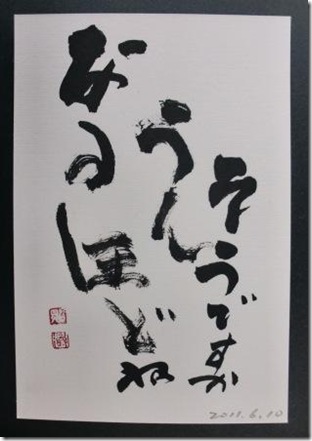 そうですか
うん
なるほどね
2011.6.10